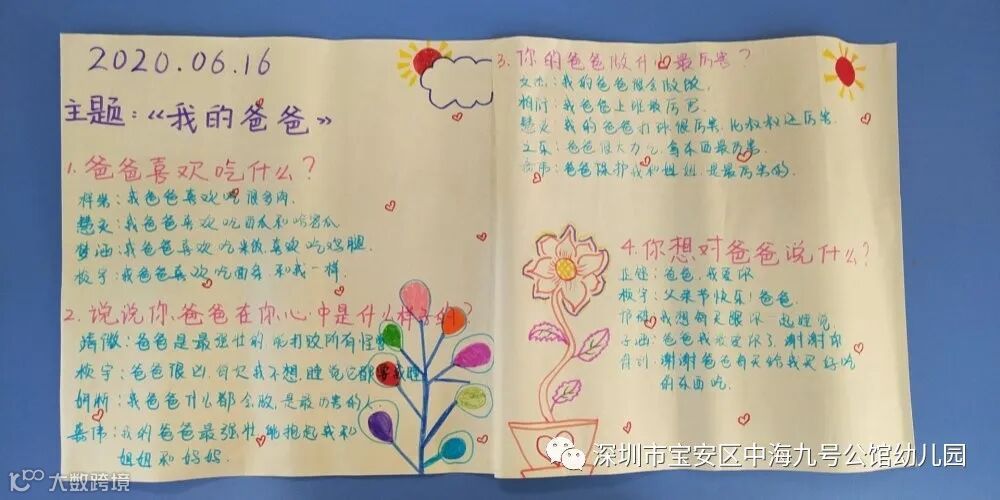 2020.06.16
主题:《我的爸爸》
1.爸爸喜欢吃什么?
梓岩:我爸爸喜欢吃很多肉.
慧文:我爸爸喜欢吃西瓜和哈密瓜
梦涵:我爸爸喜欢吃米饭,喜欢吃鸡腿.
我爸爸喜欢吃面条,和我一样.
2.说说你爸爸在你心中是什么样子的?
爸爸是最强壮的,能打败所有怪兽
爸爸很凶,每次我不想睡觉
我爸爸什么都会做,是最厉害的人
嘉伟:我的爸爸最强壮,能抱起我和
姐姐和妈妈.
3.你的爸爸做什么最厉害?
我的爸爸很会做饭.
我爸爸上班最厉害.
慧文:我的爸爸打球很厉害,比叔叔还厉害.
爸爸很大力气,拿东西最厉害.
爸爸保护我和姐姐,是最厉害的.
4.你想对爸爸说什么?
爸爸,我爱你
父亲节快乐!爸爸.
我想每天跟你一起睡觉
爸爸我
谢谢你
谢谢爸爸每天给我买好吃
的东西吃.
深圳市宝安区中海九号公馆幼儿园
大数跨境